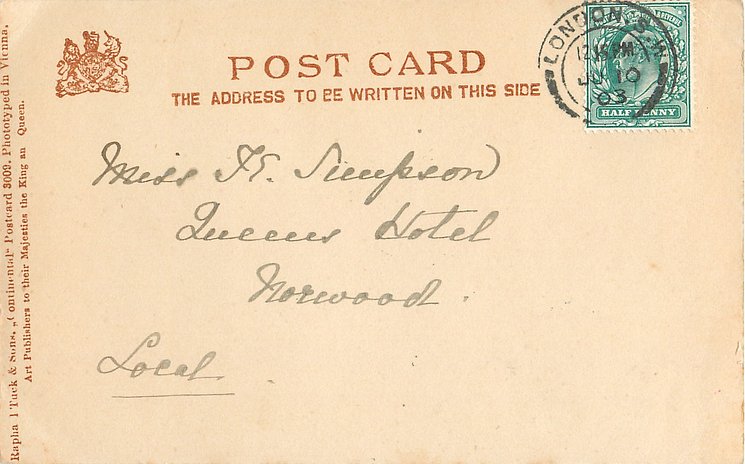 POST CARD
THE ADDRESS TO BE WRITTEN ON THIS SIDE
LONDON. S.E
12.15 PM
JU 10
03
HALF PENNY
Miss K. Simpson
Queens Hotel
Norwood.
Local
Rapha l Tuck & Sons. „Continental" Postcard 3009. Phototyped in Vienna.
Art Publishers to their Majesties the King an Queen.